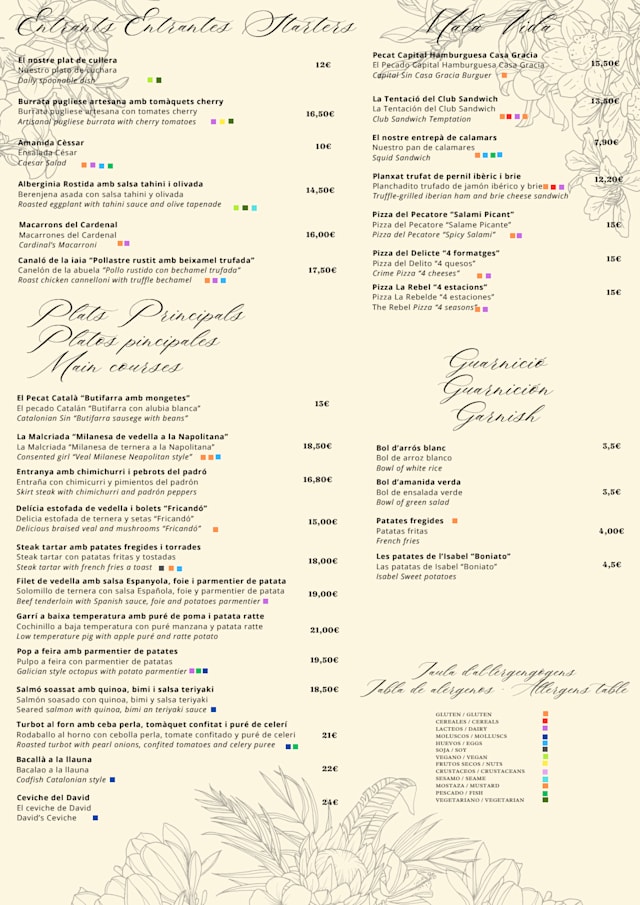 Entrants Entrantes Starters
El nostre plat de cullera
Nuestro plato de cuchara
Daily spoonable dish
12€
Burrata pugliese artesana amb tomàquets cherry
Burrata pugliese artesana con tomates cherry
Artisanal pugliese burrata with cherry tomatoes
16,50€
Amanida Cèssar
Ensalada César
Caesar Salad
10€
Alberginia Rostida amb salsa tahini i olivada
Berenjena asada con salsa tahini y olivada
Roasted eggplant with tahini sauce and olive tapenade
14,50€
Macarrons del Cardenal
Macarrones del Cardenal
Cardinal's Macarroni
16,00€
Canaló de la iaia "Pollastre rustit amb beixamel trufada"
Canelón de la abuela "Pollo rustido con bechamel trufada"
Roast chicken cannelloni with truffle bechamel
17,50€
Plats Principals
Platos pincipales
Main courses
El Pecat Català "Butifarra amb mongetes"
El pecado Catalán "Butifarra con alubia blanca"
Catalonian Sin "Butifarra sausege with beans"
15€
La Malcriada "Milanesa de vedella a la Napolitana"
La Malcriada "Milanesa de ternera a la Napolitana"
Consented girl "Veal Milanese Neapolitan style"
18,50€
Entranya amb chimichurri i pebrots del padró
Entraña con chimicurri y pimientos del padrón
Skirt steak with chimichurri and padrón peppers
16,80€
Delícia estofada de vedella i bolets "Fricandó"
Delicia estofada de ternera y setas "Fricandó"
Delicious braised veal and mushrooms "Fricandó"
15,00€
Steak tartar amb patates fregides i torrades
Steak tartar con patatas fritas y tostadas
Steak tartar with french fries a toast
18,00€
Filet de vedella amb salsa Espanyola, foie i parmentier de patata
Solomillo de ternera con salsa Española, foie y parmentier de patata
Beef tenderloin with Spanish sauce, foie and potatoes parmentier
19,00€
Garrí a baixa temperatura amb puré de poma i patata ratte
Cochinillo a baja temperatura con puré manzana y patata ratte
Low temperature pig with apple puré and ratte potato
21,00€
Pop a feira amb parmentier de patates
Pulpo a feira con parmentier de patatas
Galician style octopus with potato parmentier
19,50€
Salmó soassat amb quinoa, bimi i salsa teriyaki
Salmón soasado con quinoa, bimi y salsa teriyaki
Seared salmon with quinoa, bimi an teriyaki sauce
18,50€
Turbot al forn amb ceba perla, tomàquet confitat i puré de celerí
Rodaballo al horno con cebolla perla, tomate confitado y puré de celeri
Roasted turbot with pearl onions, confited tomatoes and celery puree
21€
Bacallà a la llauna
Bacalao a la llauna
Codfish Catalonian style
22€
Ceviche del David
El ceviche de David
David's Ceviche
24€
Mala Vida
Pecat Capital Hamburguesa Casa Gracia
El Pecado Capital Hamburguesa Casa Gracia
Capital Sin Casa Gracia Burguer
15,50€
La Tentació del Club Sandwich
La Tentación del Club Sandwich
Club Sandwich Temptation
13,50€
El nostre entrepà de calamars
Nuestro pan de calamares
Squid Sandwich
7,90€
Planxat trufat de pernil ibèric i brie
Planchadito trufado de jamón ibérico y brie
Truffle-grilled iberian ham and brie cheese sandwich
12,20€
Pizza del Pecatore "Salami Picant"
Pizza del Pecatore "Salame Picante"
Pizza del Pecatore "Spicy Salami"
15€
Pizza del Delicte "4 formatges"
Pizza del Delito "4 quesos"
Crime Pizza "4 cheeses"
15€
Pizza La Rebel "4 estacions"
Pizza La Rebelde "4 estaciones"
The Rebel Pizza "4 seasons"
15€
Guarnició
Guarnición
Garnish
Bol d'arrós blanc
Bol de arroz blanco
Bowl of white rice
3,5€
Bol d'amanida verda
Bol de ensalada verde
Bowl of green salad
3,5€
Patates fregides
Patatas fritas
French fries
4,00€
Les patates de l'Isabel "Boniato"
Las patatas de Isabel "Boniato"
Isabel Sweet potatoes
4,5€
Taula d'al·lergengogens
Tabla de alergenos · Allergens table
GLUTEN / GLUTEN
CEREALES / CEREALS
LACTEOS / DAIRY
MOLUSCOS / MOLLUSCS
HUEVOS / EGGS
SOJA / SOY
VEGANO / VEGAN
FRUTOS SECOS / NUTS
CRUSTACEOS / CRUSTACEANS
SESAMO / SEAME
MOSTAZA / MUSTARD
PESCADO / FISH
VEGETARIANO / VEGETARIAN